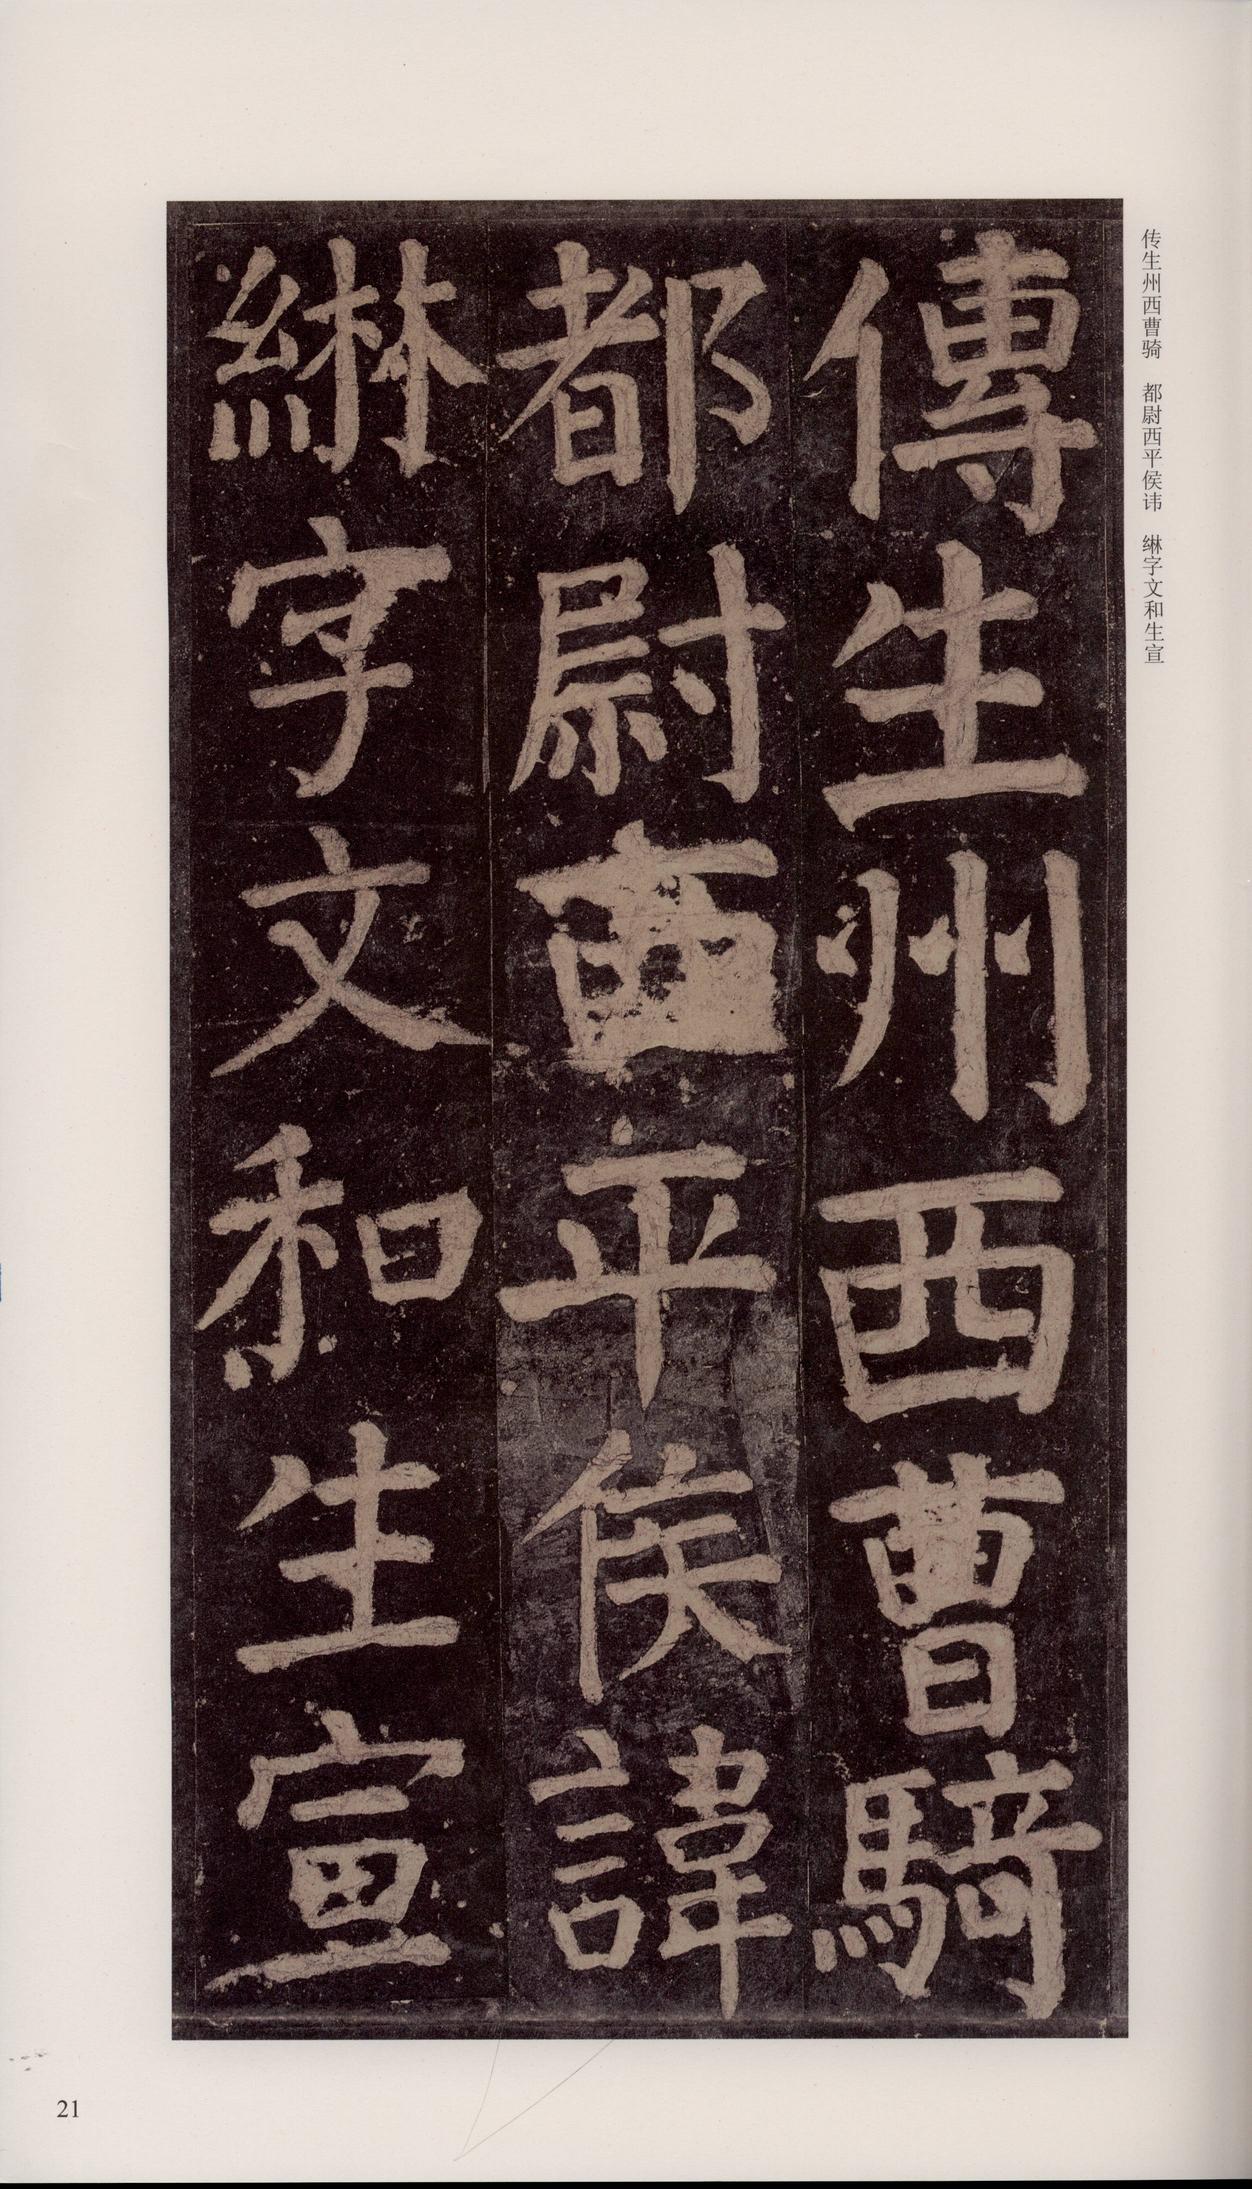 传生州西曹骑　都尉西平侯讳　綝字文和生宣
傳生州西曹騎
都尉西平侯諱
綝字文和生宣
21